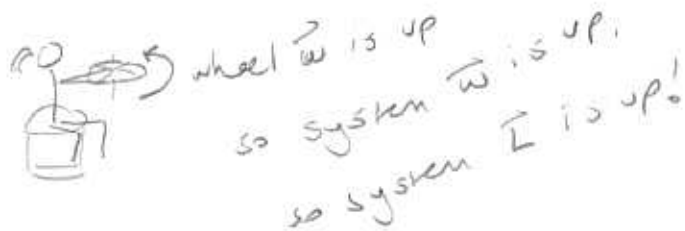 wheel w⃗ is up
so system w⃗ is up,
so system L⃗ is up!